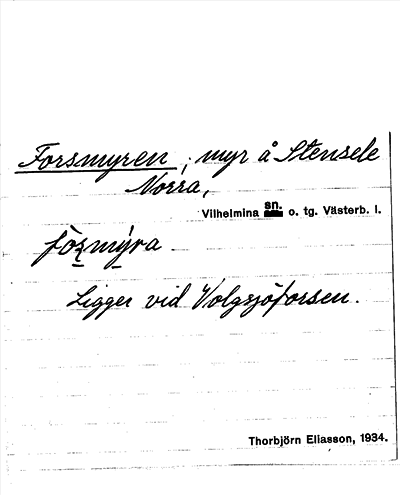 Forsmyren, myr å Stensele
Norra,
Vilhelmina sn. o. tg. Västerb. l.
fòrmýra
Ligger vid Volgsjöforsen.
Thorbjörn Eliasson, 1934.